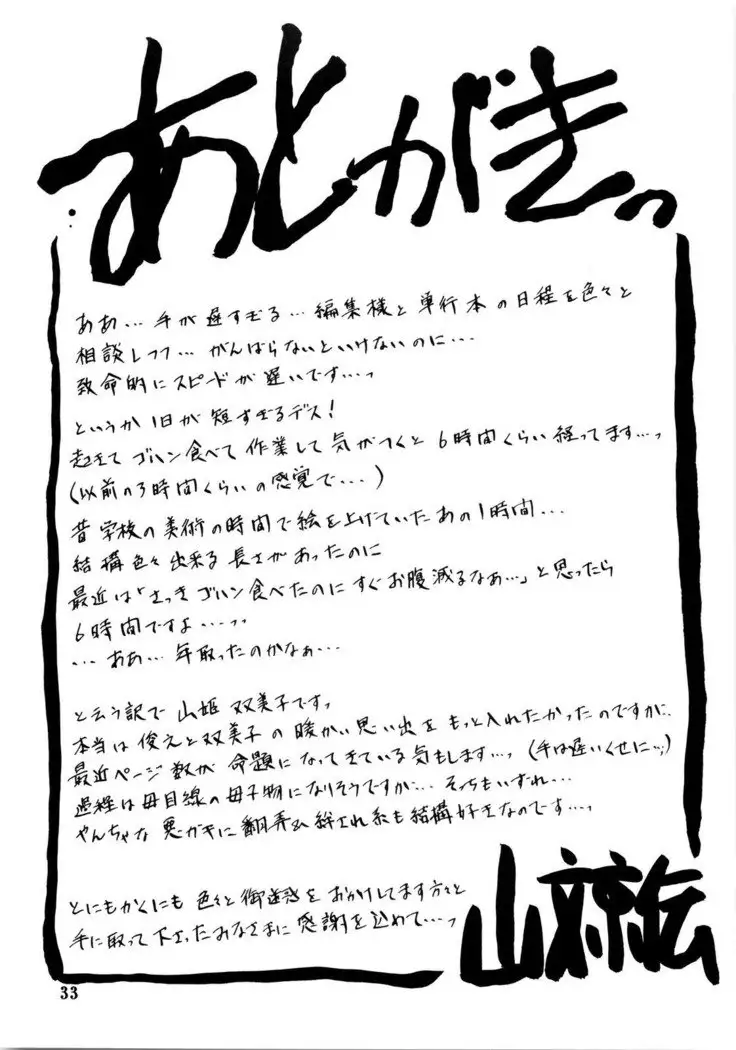 あとがきっ
ああ…手が遅すぎる…編集様と単行本の日程を色々と
相談しつつ…がんばらないといけないのに…
致命的にスピードが遅いです…っ
というか1日が短すぎるデス!
起きてゴハン食べて作業して気がつくと6時間くらい経ってます…っ
(以前の3時間くらいの感覚で…)
昔学校の美術の時間で絵を上げていたあの1時間…
結構色々出来る長さがあったのに
最近は「さっきゴハン食べたのにすぐお腹減るなぁ…」と思ったら
6時間ですよ…っっ
…ああ…年取ったのかなぁ…
と云う訳で山姫双美子ですっ
本当は俊えと双美子の暖かい思い出をもっと入れたかったのですが、
最近ページ数が命題になってきている気もします…っ(手は遅いくせに…)
過程は母目線の母子物になりそうですが…そっちもいずれ…
やんちゃな悪ガキに翻弄&絆され系も結構好きなのです…っ
とにもかくにも色々と御迷惑をおかけしてます方々と
手に取って下さったみなさまに感謝を込めて…っ
山文京伝
33